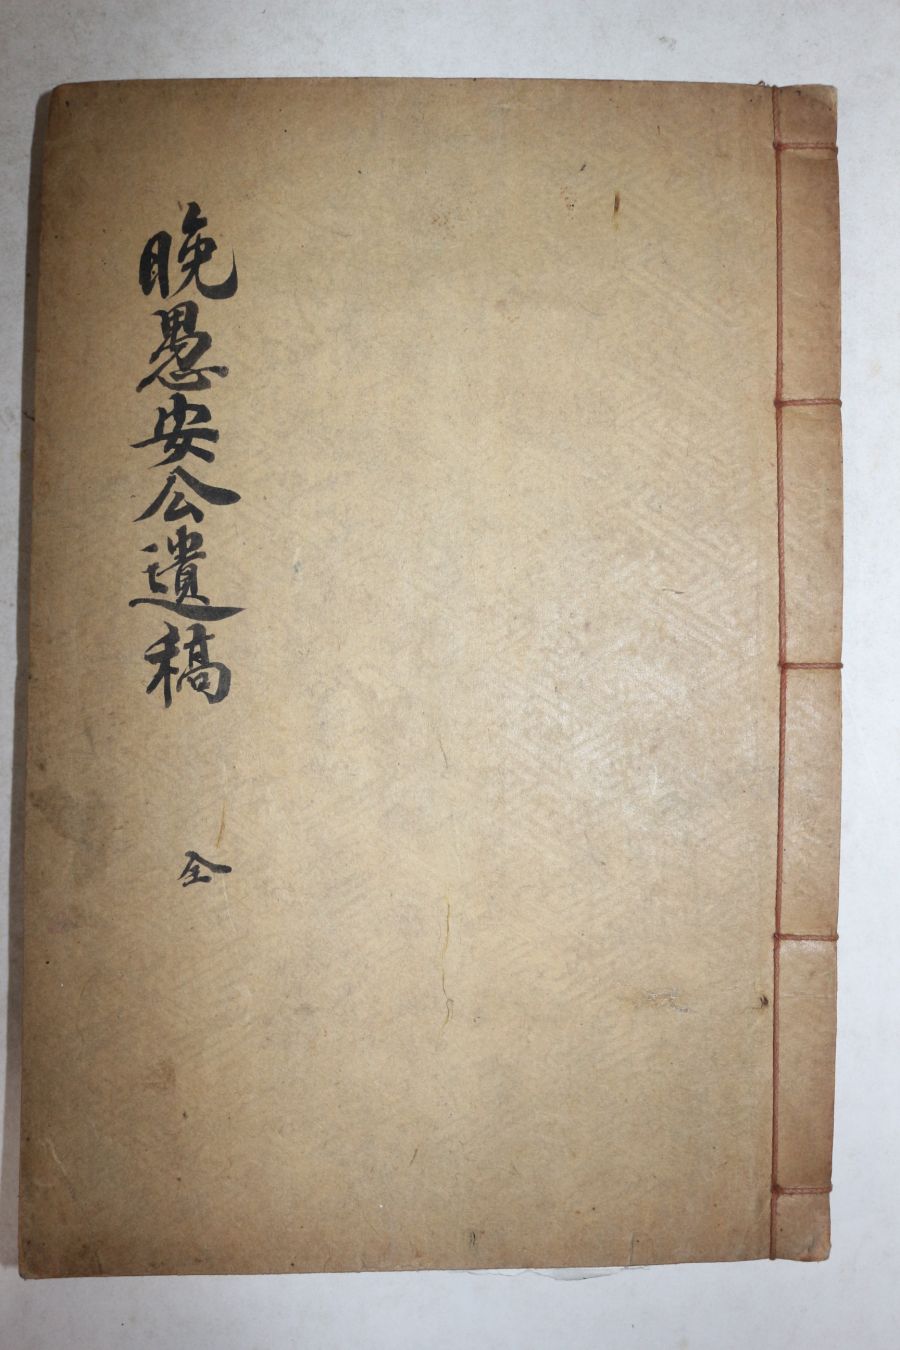 晩愚安公遺稿
全